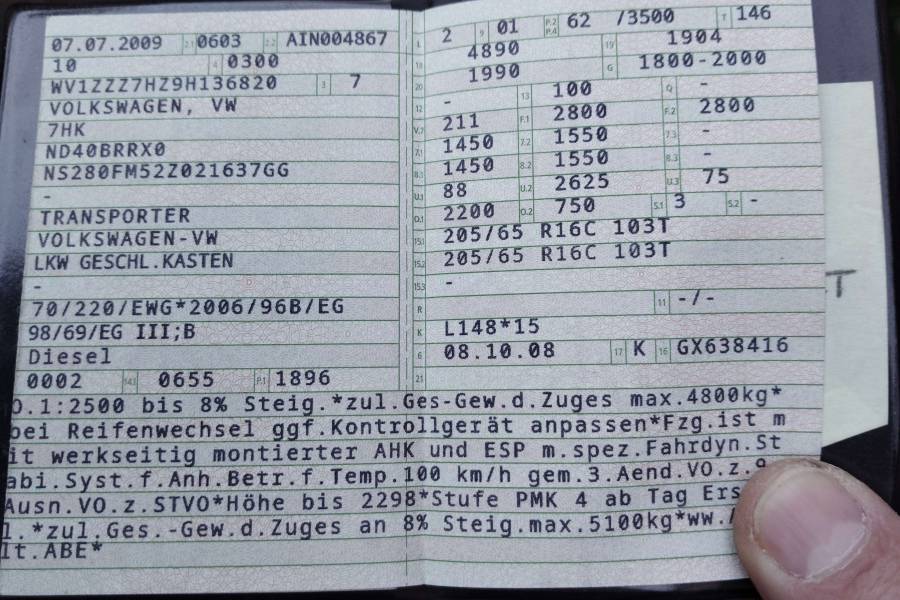 07.07.2009 2.1 0603 2.2 AIN004867
10 4 0300
WV1ZZZ7HZ9H136820 3 7
VOLKSWAGEN, VW
7HK
ND40BRRX0
NS280FM52Z021637GG
-
TRANSPORTER
VOLKSWAGEN-VW
LKW GESCHL.KASTEN
-
70/220/EWG*2006/96B/EG
98/69/EG III;B
Diesel
0002 14.1 0655 P.1 1896
L 2 9 01 P.2 P.4 62 /3500 T 146
18 4890 19 1904
20 1990 G 1800-2000
12 - 13 100 Q -
V.7 211 F.1 2800 F.2 2800
7.1 1450 7.2 1550 7.3 -
8.1 1450 8.2 1550 8.3 -
U.1 88 U.2 2625 U.3 75
O.1 2200 O.2 750 S.1 3 S.2 -
15.1 205/65 R16C 103T
15.2 205/65 R16C 103T
15.3 -
R 11 -/-
K L148*15
6 08.10.08 17 K 16 GX638416
21
O.1:2500 bis 8% Steig.*zul.Ges-Gew.d.Zuges max.4800kg*
bei Reifenwechsel ggf.Kontrollgerät anpassen*Fzg.ist m
it werkseitig montierter AHK und ESP m.spez.Fahrdyn.St
abi.Syst.f.Anh.Betr.f.Temp.100 km/h gem.3.Aend.VO.z.9
Ausn.VO.z.STVO*Höhe bis 2298*Stufe PMK 4 ab Tag Ers
l.*zul.Ges.-Gew.d.Zuges an 8% Steig.max.5100kg*ww.
lt.ABE*
T